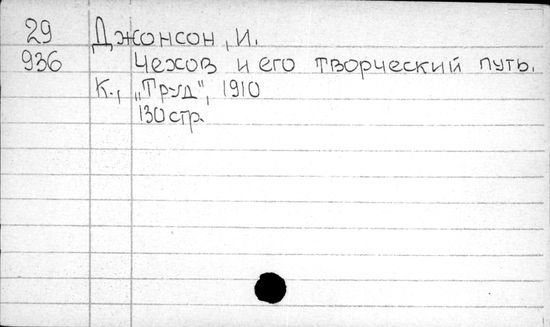 29 Джонсон, И.
936 Чехов и его творческий путь.
К., „Труд", 1910
130 стр.